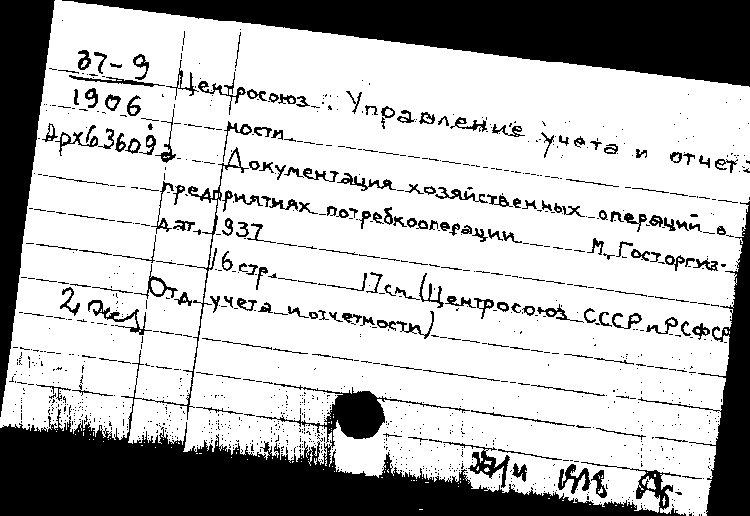 37-9
1906
Арх63609а
Центросоюз. Управление учета и отчет-
ности.
Документация хозяйственных операций в
предприятиях потребкооперации М, Госторгиз-
дат, 1937
16 стр. 17см (Центросоюз СССР и РСФСР
Отд. учета и отчетности)
2 экз.